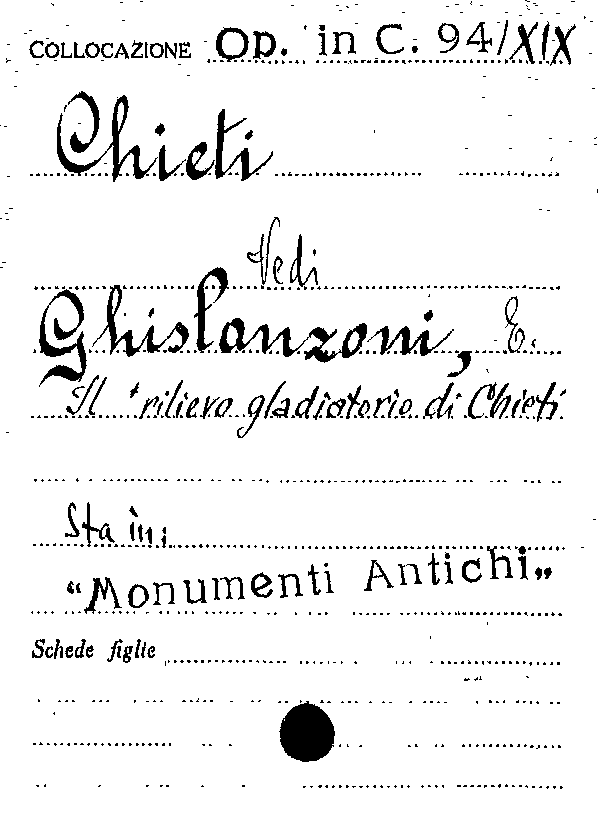 COLLOCAZIONE OP. in C. 94/XIX
Chieti
Vedi
Ghislanzoni, E.
Il rilievo gladiatorio di Chieti
Sta in:
“Monumenti Antichi„
Schede figlie